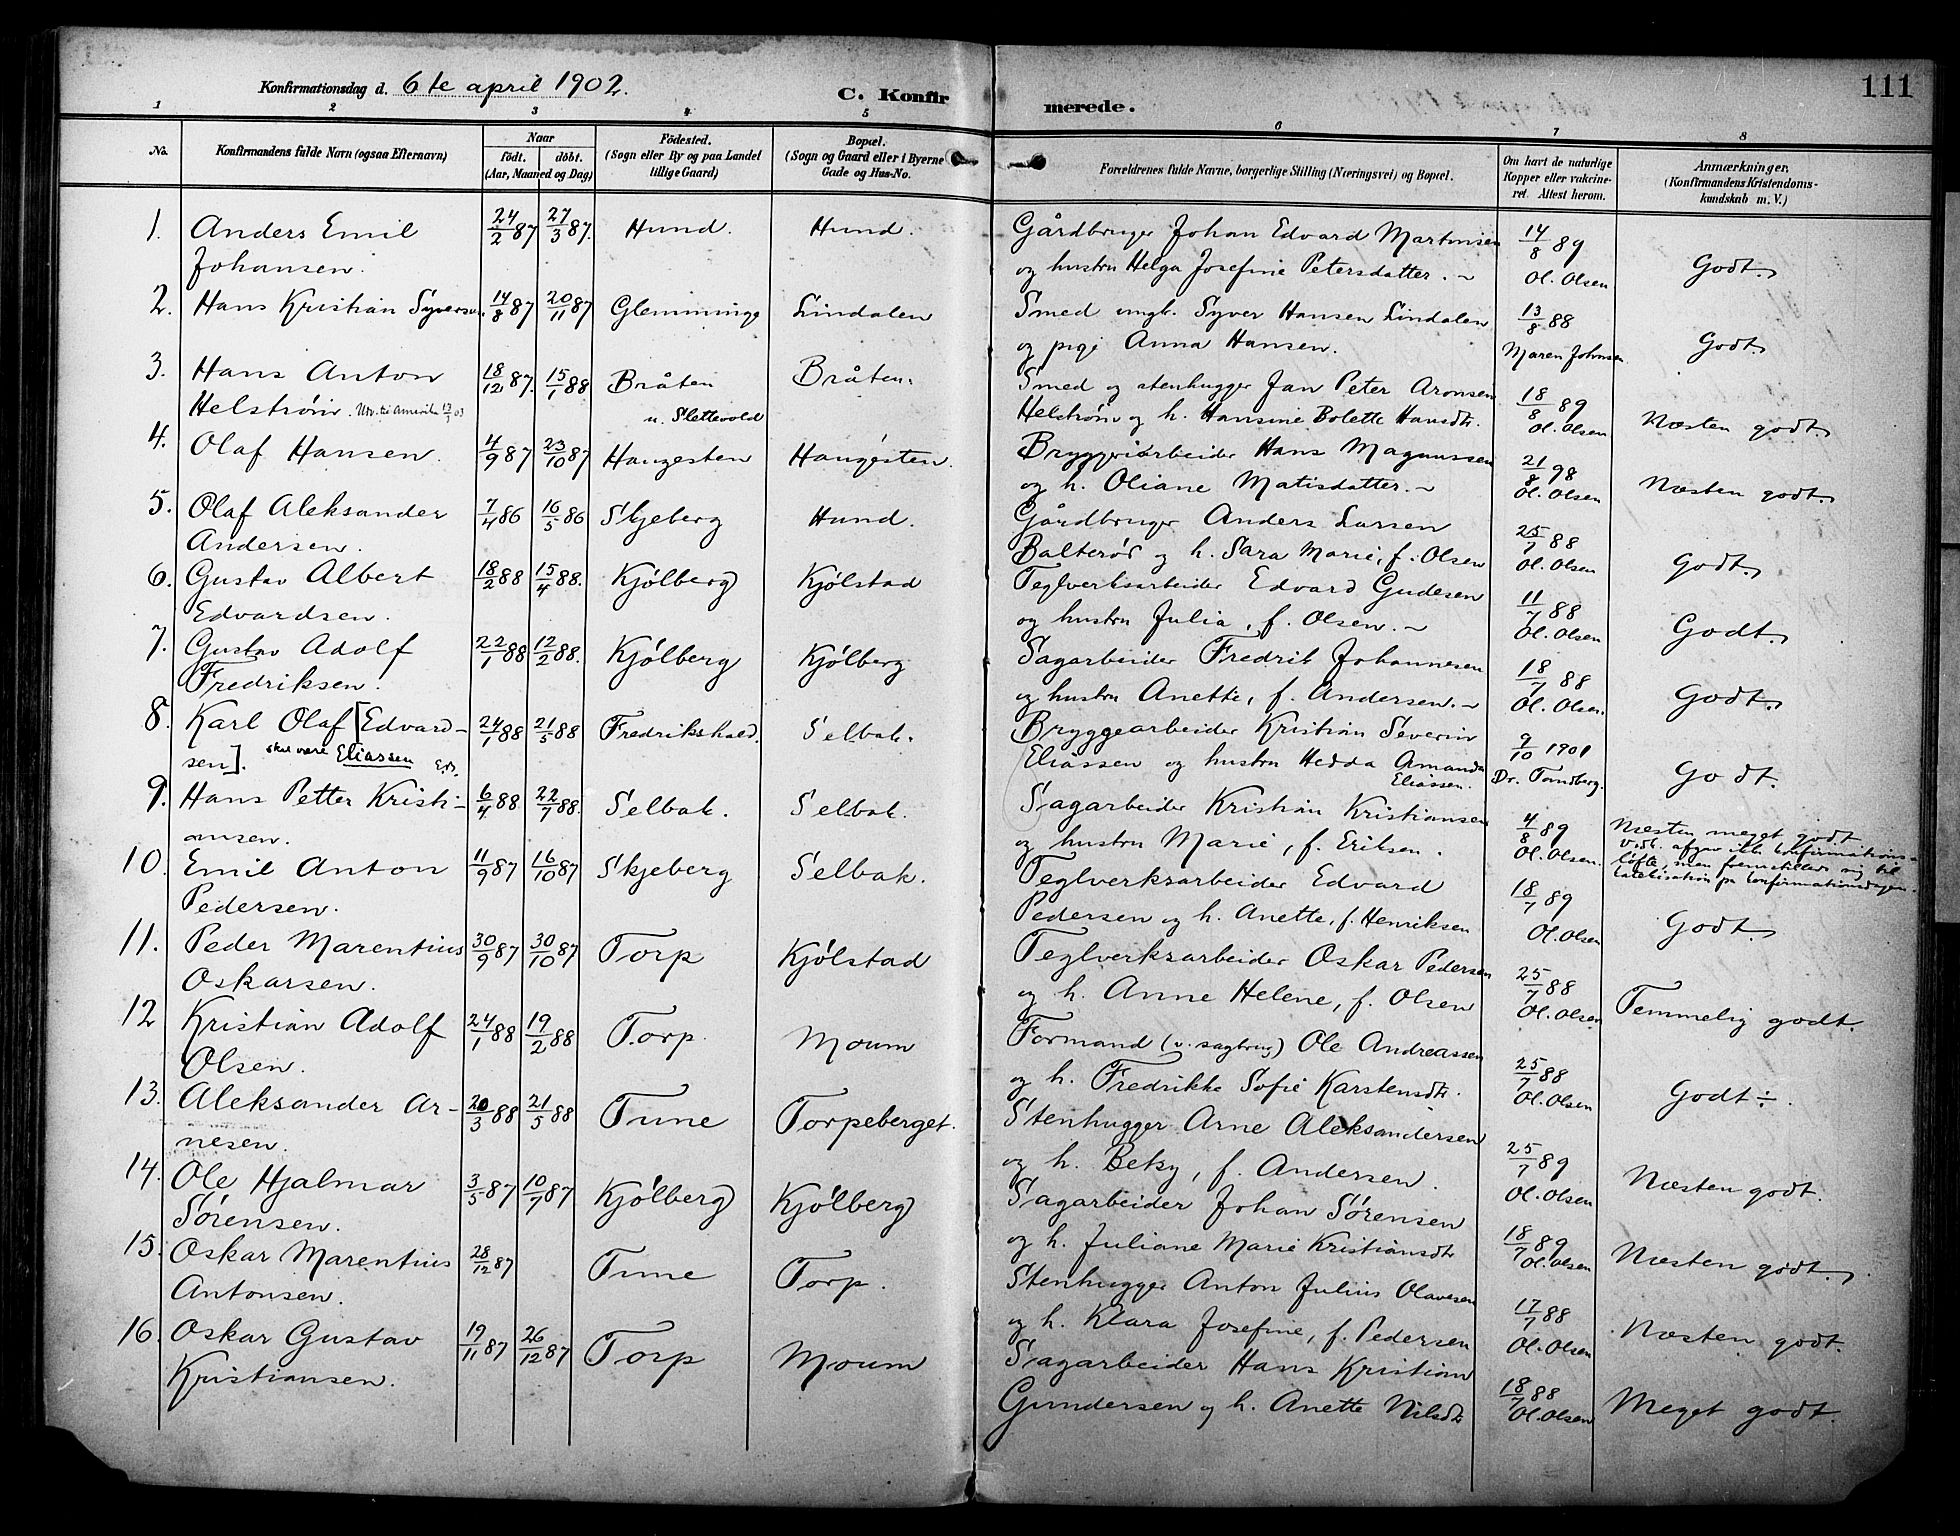 111
Konfirmationsdag d. 6te april 1902.
C. Konfirmerede.
1 2 3 4 5 6 7 8
No. Konfirmandens fulde Navn (ogsaa Efternavn) Naar födt. döbt. (Aar, Maaned og Dag) Födested. (Sogn eller By og paa Landet tillige Gaard) Bopæl. (Sogn og Gaard eller i Byerne Gade og Hus-No. Forældrenes fulde Navne, borgerlige Stilling (Næringsvei) og Bopæl. Om havt de naturlige Kopper eller vakcineret. Attest herom. Anmærkninger. (Konfirmandens Kristendomskundskab m. V.)
1. Anders Emil 24/2 87 27/3 87. Hund. Hund. Gårdbruger Johan Edvard Martinsen 14/8 89
Johansen. og hustru Helga Josefine Petersdatter. ~ Ol. Olsen Godt.
2. Hans Kristian Syversen. 14/8 87 20/11 87 Glemminge Lindalen Smed ungk. Syver Hansen Lindalen 13/8 88
og pige Anna Hansen. Maren Johnsen Godt.
3. Hans Anton 18/12 87. 15/1 88 Bråten Bråten. Smed og stenhugger Jan Peter Aronsen 18/8 89
Helstrøm. Utv. til Amerika u. Slettevold Helstrøm og h. Hansine Bolette Hansdtr. Ol. Olsen Næsten godt.
4. Olaf Hansen. 4/9 87 23/10 87 Haugesten Haugesten. Bryggeriarbeider Hans Magnussen 21/8 98
og h. Oliane Matisdatter. ~ Ol. Olsen Næsten godt.
5. Olaf Aleksander 7/4 86 16/5 86 Skjeberg Hund. Gårdbruger Anders Larsen 25/7 88
Andersen. Balterød og h. Sara Marie, f. Olsen Ol. Olsen Godt.
6. Gustav Albert 18/2 88 15/4 88. Kjølberg Kjølstad Teglverksarbeider Edvard Gudesen 11/7 88
Edvardsen. og hustru Julia, f. Olsen. ~ Ol. Olsen Godt.
7. Gustav Adolf 22/1 88 12/2 88. Kjølberg Kjølberg Sagarbeider Fredrik Johannesen 18/7 88
Fredriksen. og hustru Anette, f. Andersen. ~ Ol. Olsen. Godt.
8. Karl Olaf [Edvard- 24/1 88 21/5 88 Fredrikshald. Selbak. Bryggearbeider Kristian Severin 9/10 1901
sen]. skal være Eliassen Eliassen og hustru Hedda Amanda Eliassen. Dr. Tandberg. Godt.
9. Hans Petter Kristi- 6/4 88 22/7 88. Selbak. Selbak. Sagarbeider Kristian Kristiansen 4/8 89 Næsten meget godt.
ansen. og hustru Marie, f. Eriksen. Ol. Olsen. afgav ikke konfirmations-
løfte, men fremstillede sig til
katekisation på konfirmationsdagen.
10. Emil Anton 11/9 87 16/10 87 Skjeberg Selbak. Teglverksarbeider Edvard 18/7 89
Pedersen. Pedersen og h. Anette, f. Henriksen Ol. Olsen Godt.
11. Peder Marentius 30/9 87 30/10 87 Torp Kjølstad Teglverksarbeider Oskar Pedersen 25/7 88
Oskarsen. og h. Anne Helene, f. Olsen Ol. Olsen Temmelig godt.
12 Kristian Adolf 24/1 88 19/2 88 Torp. Moum Formand (v. sagbrug) Ole Andreassen 25/7 88
Olsen. og h. Fredrikke Sofie Karstensdtr. Ol. Olsen Godt ÷.
13. Aleksander Ar- 20/3 88 21/5 88 Tune Torpeberget. Stenhugger Arne Aleksandersen 25/7 89
nesen. og h. Betsy, f. Andersen. Ol. Olsen Næsten godt.
14. Ole Hjalmar 3/5 87 10/7 87 Kjølberg Kjølberg Sagarbeider Johan Sørensen 18/7 89
Sørensen. og h. Juliane Marie Kristiansdtr Ol. Olsen Næsten godt.
15. Oskar Marentius 28/12 87 Tune Torp. Stenhugger Anton Julius Olavesen 17/7 88
Antonsen. og h. Klara Josefine, f. Pedersen Ol. Olsen Næsten godt.
16. Oskar Gustav 19/11 87 26/12 87 Torp Moum Sagarbeider Hans Kristian 18/7 88
Kristiansen. Gundersen og h. Anette Nilsdtr Ol. Olsen Meget godt.